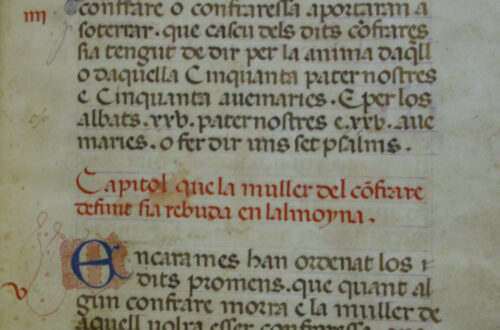 iiij
confrare o confraressa aportaran a
soterrar. que cascu dels dits cõfrares
sia tengut de dir per la anima daq̃ll
o daquella Cinquanta pater nostres
e Cinquanta auemaries. E per los
albats .xxv. pater nostres e .xxv. aue
maries. o fer dir uns set psalms.
Capitol que la muller del cõfrare
defunt sia rebuda en lalmoyna.
v
Encara mes han ordenat los
dits promens. que quant al
gun confrare morra e la muller de
aquell volra esser confraressa